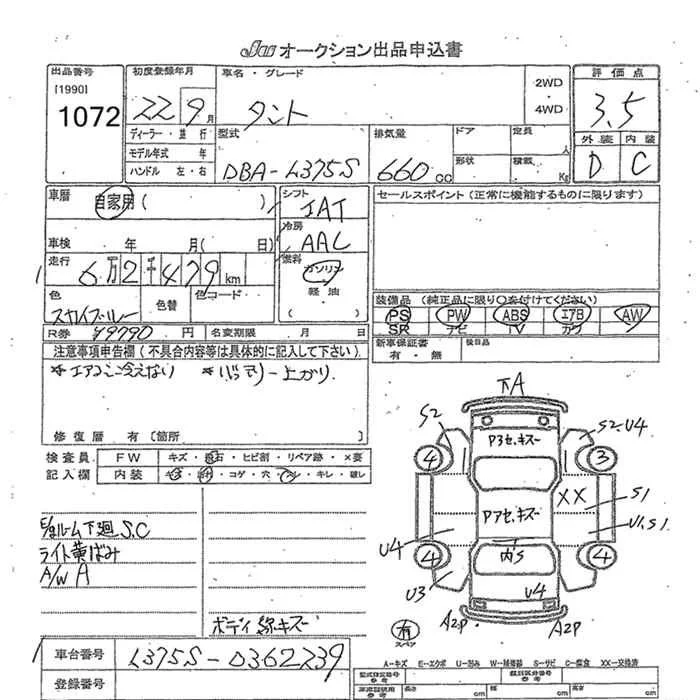 JU オークション出品申込書
出品番号
[1990]
1072
初度登録年月
22 9月
車名・グレード
タント
2WD
・
4WD
評価点
3.5
外装 内装
D C
ディーラー・並行
モデル年式 年
ハンドル 左・右
型式
DBA-L375S
排気量
660cc
ドア
定員 人
形状
積載 Kg
車歴
自家用( )
車検 年 月( 日)
走行
6万2千479km
色
スカイブルー
色替
色コード
シフト
IAT
冷房
AAC
燃料
ガソリン
・
軽油
( )
セールスポイント(正常に機能するものに限ります)
装備品(純正品に限り○を付けてください)
PS PW ABS エアB AW
SR ナビ TV カワ
R券 ¥9790円
名変期限 月 日
新車保証書
有・無
後日品
注意事項申告欄(不具合内容等は具体的に記入して下さい)
*エアコン冷えない *バッテリー上がり
修復歴 有 〔箇所
検査員 FW キズ・飛石・ヒビ割・リペア跡・×要
記入欄 内装 キズ・汚れ・コゲ・穴・ハレ・キレ・破レ
E/gルーム下廻S.C
ライト黄ばみ
A/W A
ボディ線キズ
下A
S2
P3セ.キズ
S2.U4
4
3
XX
S1
Pアセ.キズ
U1.S1
U4
4
内S
4
U3
U4
A2P
A2P
有
スペア
車台番号
L375S-0362239
登録番号
A-キズ E-エクボ U-凹み W-補修跡 S-サビ C-腐食 XX-交換済
型式指定番号
参考
類別区分番号
参考
長さ
cm
幅
cm
高さ
cm